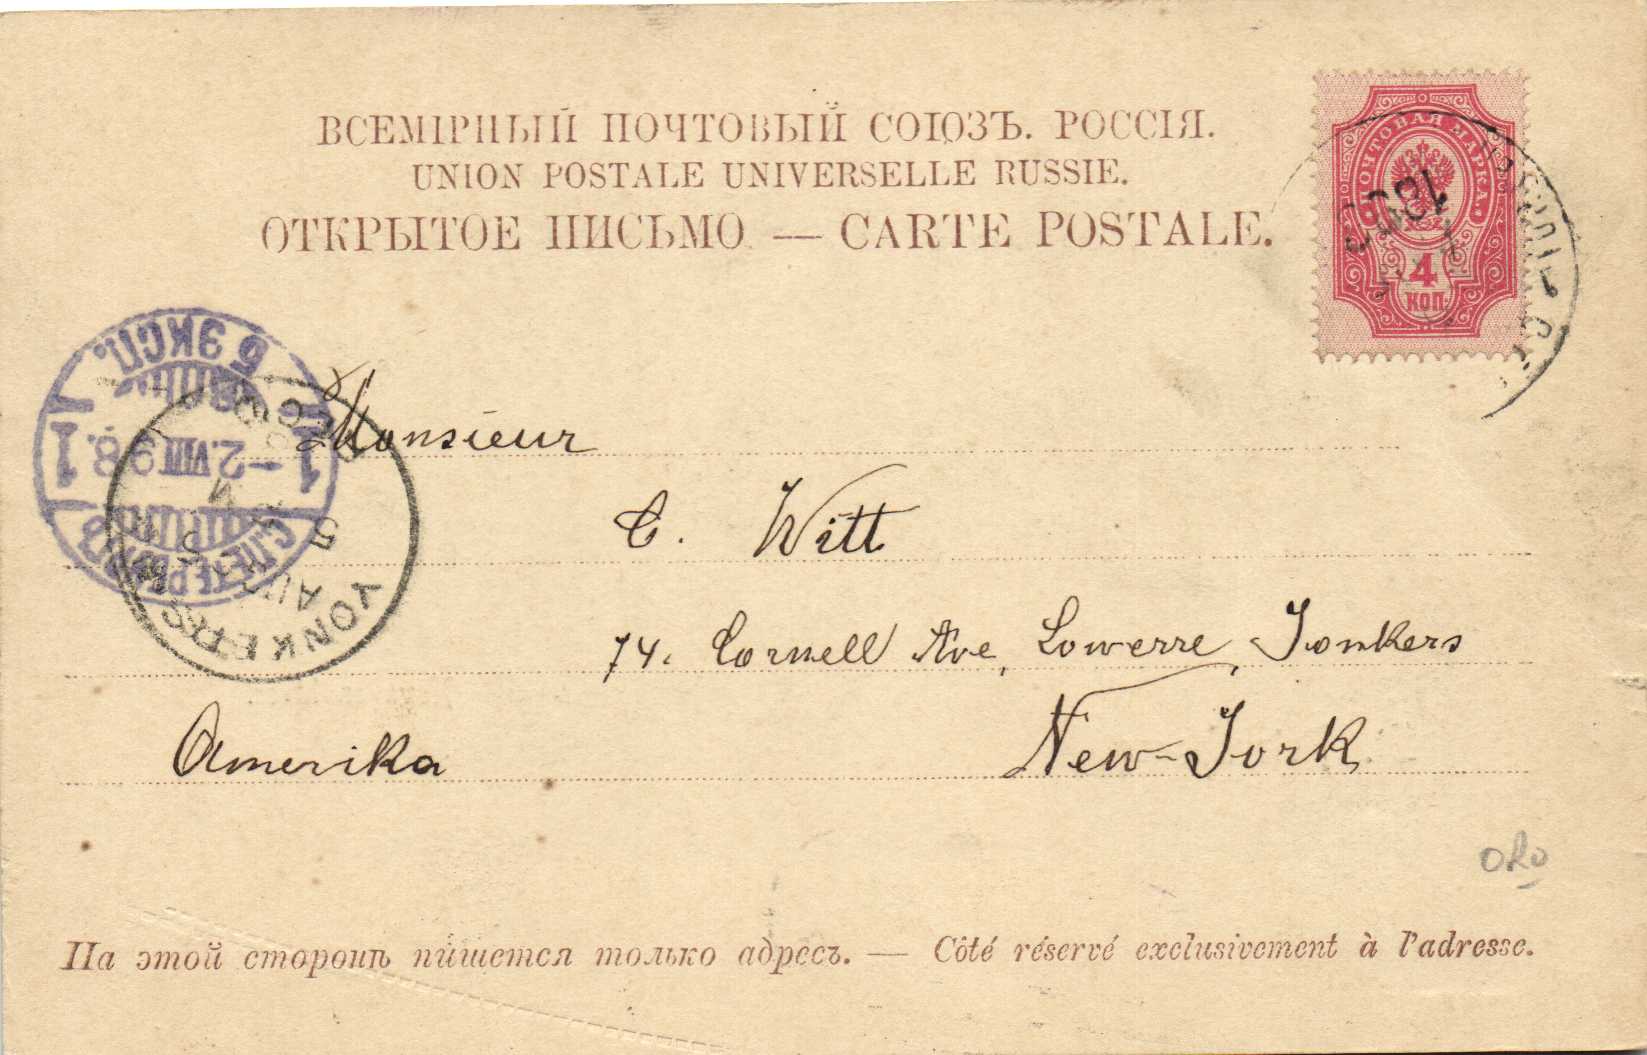 ВСЕМІРНЫЙ ПОЧТОВЫЙ СОЮЗЪ. РОССІЯ.
UNION POSTALE UNIVERSELLE RUSSIE.
ОТКРЫТОЕ ПИСЬМО — CARTE POSTALE.
ПОЧТОВАЯ МАРКА.
4
КОП.
6 ЭКСП.
1 -2.VIII 98. 1
С.ПЕТЕРБУРГЪ
YONKERS
Monsieur
C. Witt
74. Cornell Ave, Lowerre, Jonkers
Amerika New-Jork
На этой сторонѣ пишется только адресъ. — Côté réservé exclusivement à l'adresse.